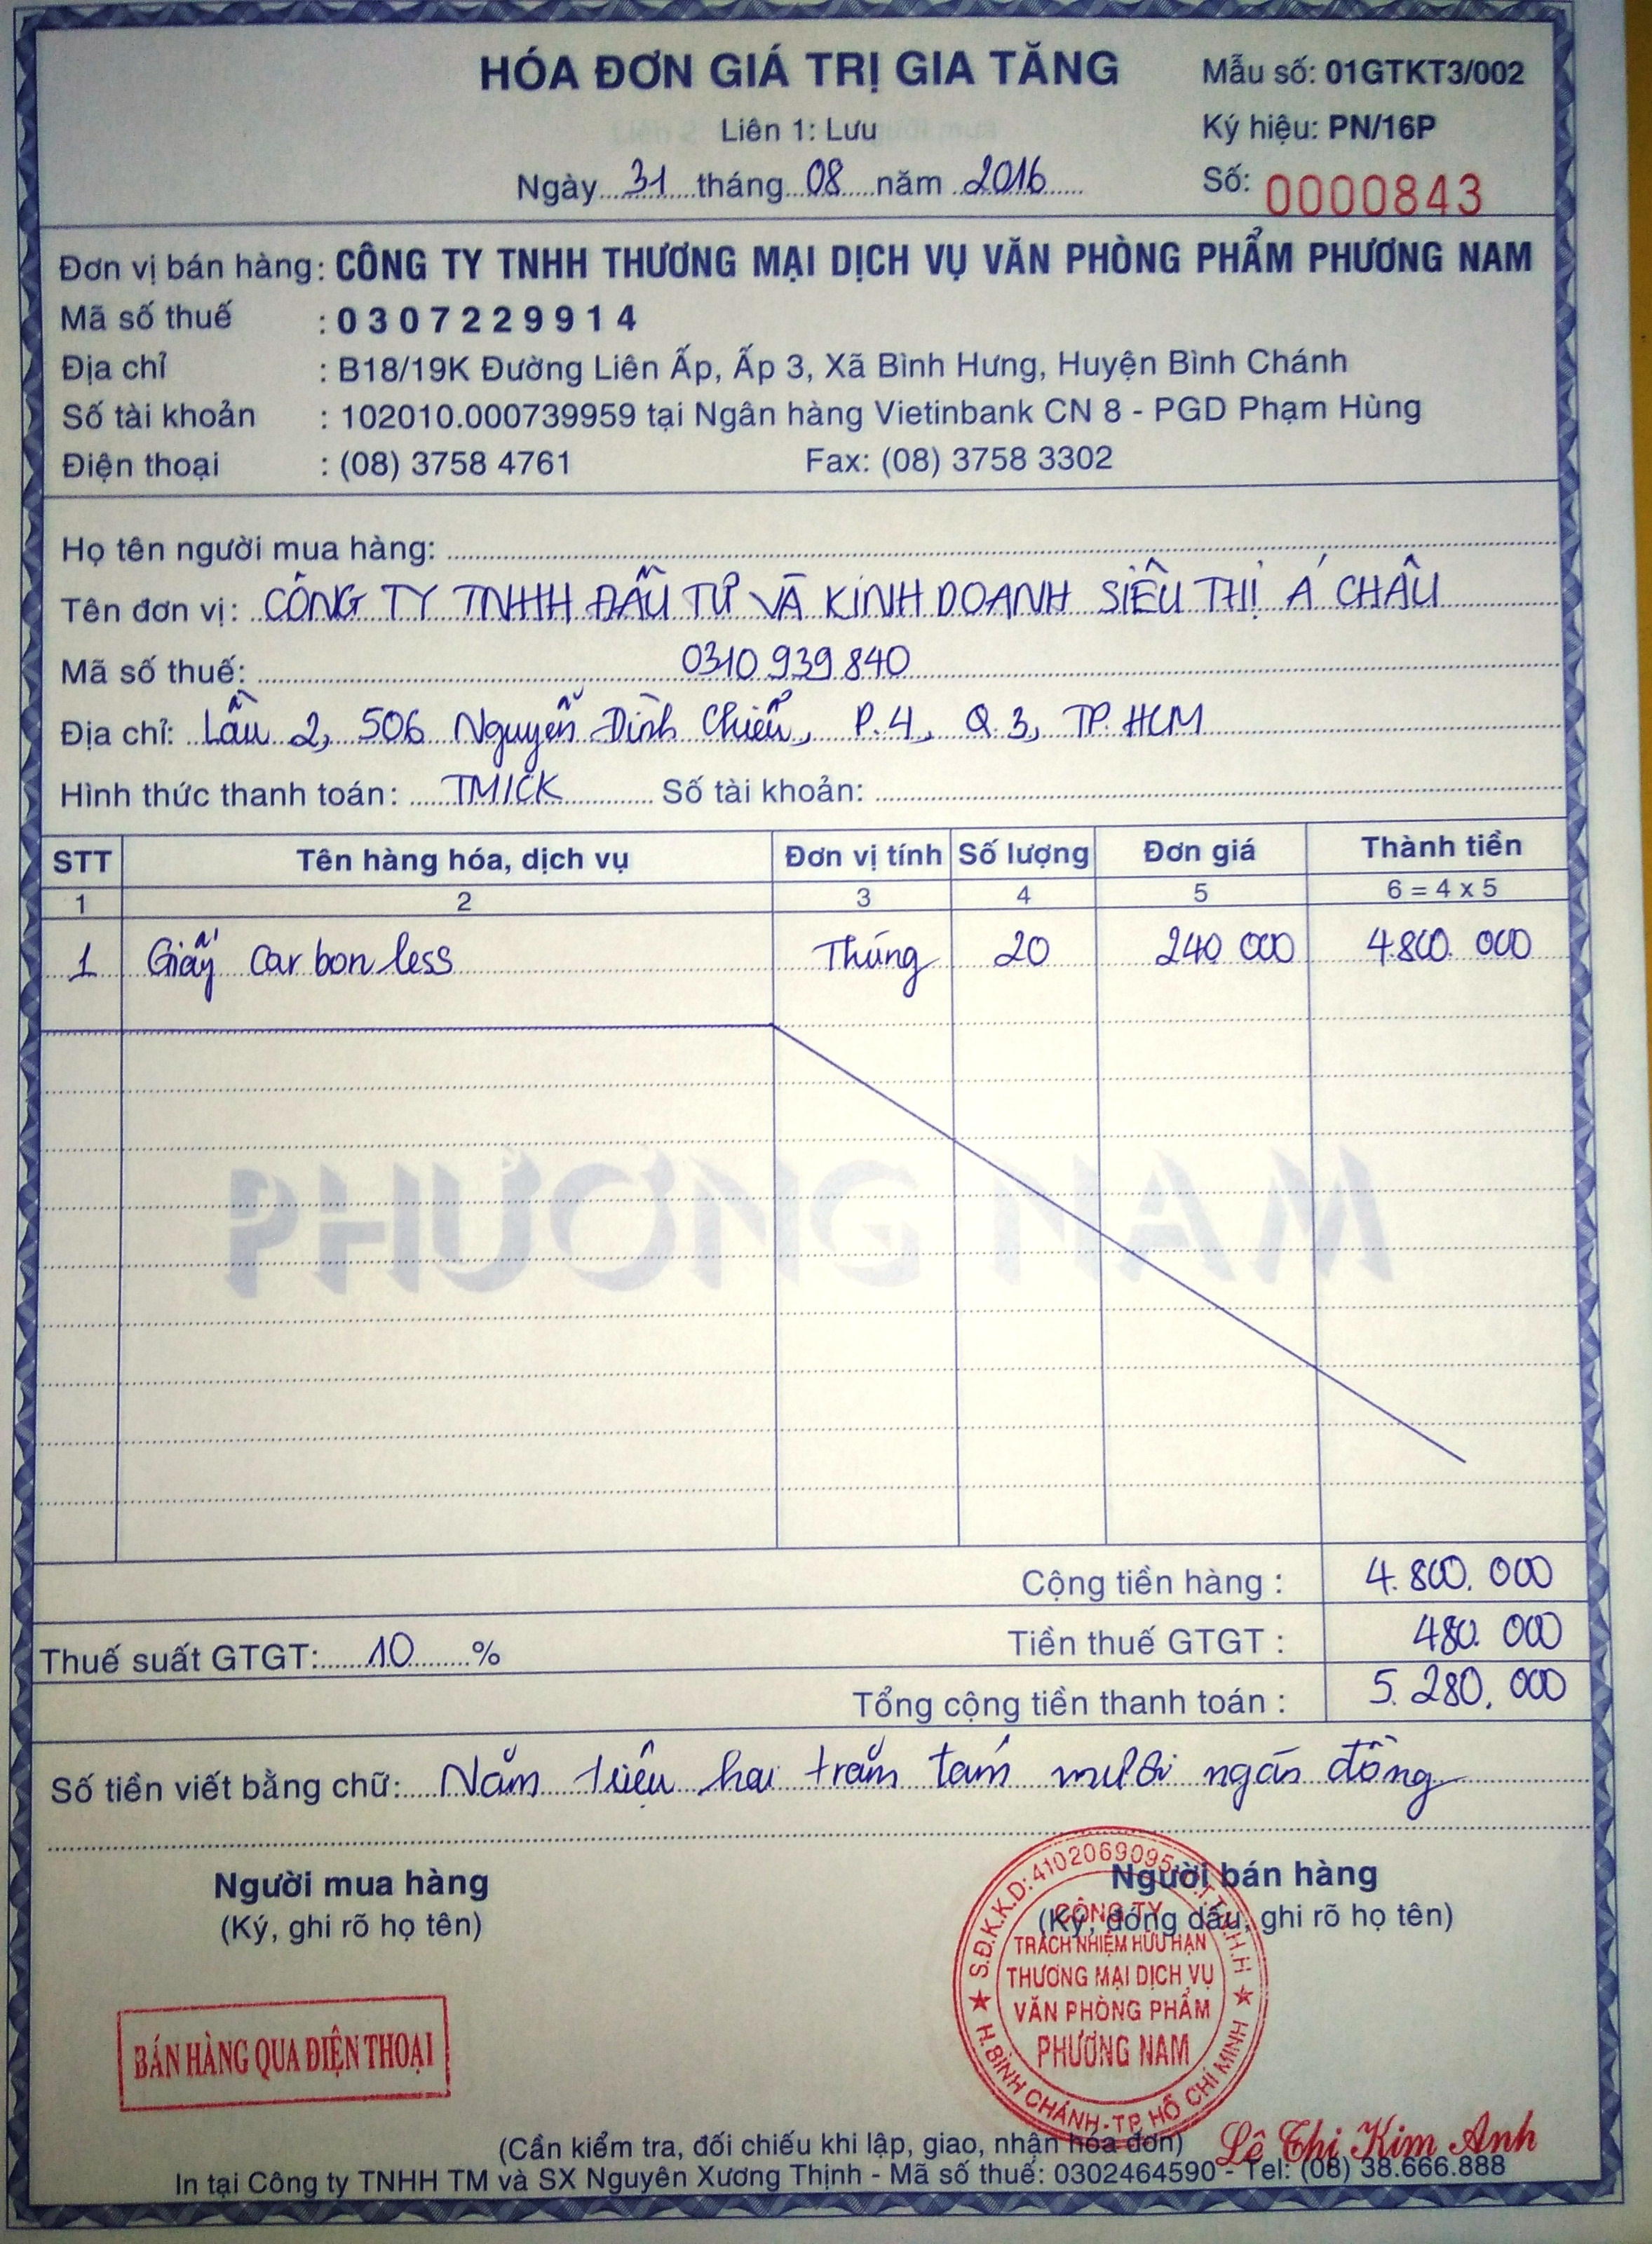 HÓA ĐƠN GIÁ TRỊ GIA TĂNG
Mẫu số: 01GTKT3/002
Liên 1: Lưu
Ký hiệu: PN/16P
Ngày 31 tháng 08 năm 2016
Số: 0000843
Đơn vị bán hàng: CÔNG TY TNHH THƯƠNG MẠI DỊCH VỤ VĂN PHÒNG PHẨM PHƯƠNG NAM
Mã số thuế : 0307229914
Địa chỉ : B18/19K Đường Liên Ấp, Ấp 3, Xã Bình Hưng, Huyện Bình Chánh
Số tài khoản : 102010.000739959 tại Ngân hàng Vietinbank CN 8 - PGD Phạm Hùng
Điện thoại : (08) 3758 4761 Fax: (08) 3758 3302
Họ tên người mua hàng:
Tên đơn vị: CÔNG TY TNHH ĐẦU TƯ VÀ KINH DOANH SIÊU THỊ Á CHÂU
Mã số thuế: 0310939840
Địa chỉ: Lầu 2, 506 Nguyễn Đình Chiểu, P.4, Q 3, TP. HCM
Hình thức thanh toán: TM/CK Số tài khoản:
STT Tên hàng hóa, dịch vụ Đơn vị tính Số lượng Đơn giá Thành tiền
1 2 3 4 5 6 = 4 x 5
1 Giấy Carbonless Thùng 20 240 000 4.800.000
PHƯƠNG NAM
Cộng tiền hàng : 4.800.000
Thuế suất GTGT: 10 % Tiền thuế GTGT : 480.000
Tổng cộng tiền thanh toán : 5.280.000
Số tiền viết bằng chữ: Năm triệu hai trăm tám mươi ngàn đồng
Người mua hàng
(Ký, ghi rõ họ tên)
Người bán hàng
(Ký, đóng dấu, ghi rõ họ tên)
BÁN HÀNG QUA ĐIỆN THOẠI
S.Đ.K.K.D: 4102069095 T.N.H.H
CÔNG TY
TRÁCH NHIỆM HỮU HẠN
THƯƠNG MẠI DỊCH VỤ
VĂN PHÒNG PHẨM
PHƯƠNG NAM
H.BÌNH CHÁNH-TP HỒ CHÍ MINH
Lê Thị Kim Anh
(Cần kiểm tra, đối chiếu khi lập, giao, nhận hóa đơn)
In tại Công ty TNHH TM và SX Nguyên Xương Thịnh - Mã số thuế: 0302464590 - Tel: (08) 38.666.888